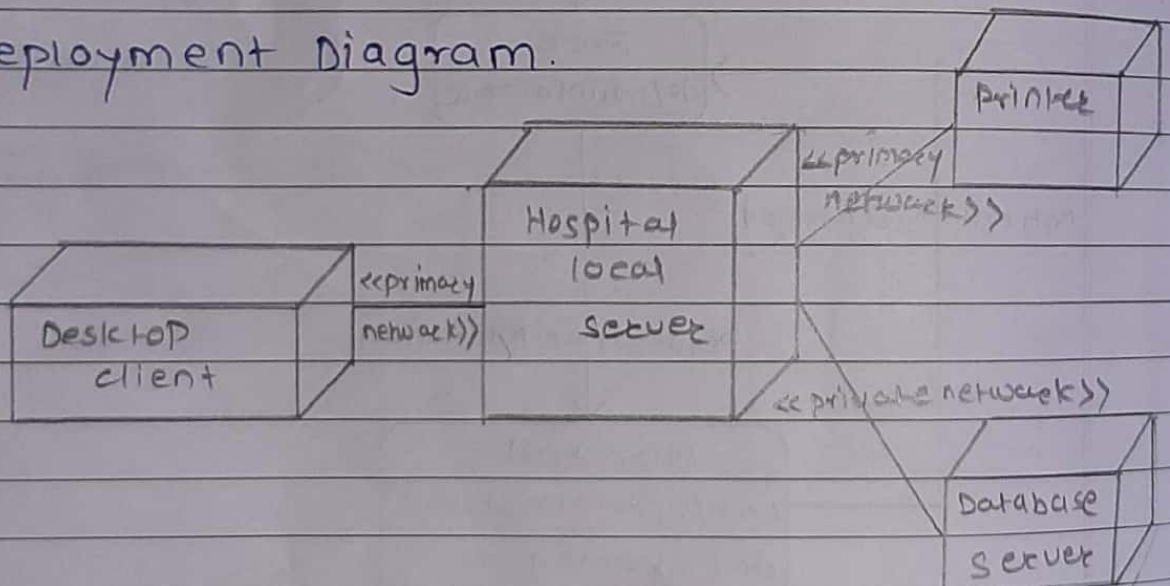 eployment Diagram.
Printer
<<primary
network>>
Hospital
local
server
<<primary
network>>
Desktop
client
<<private network>>
Database
server